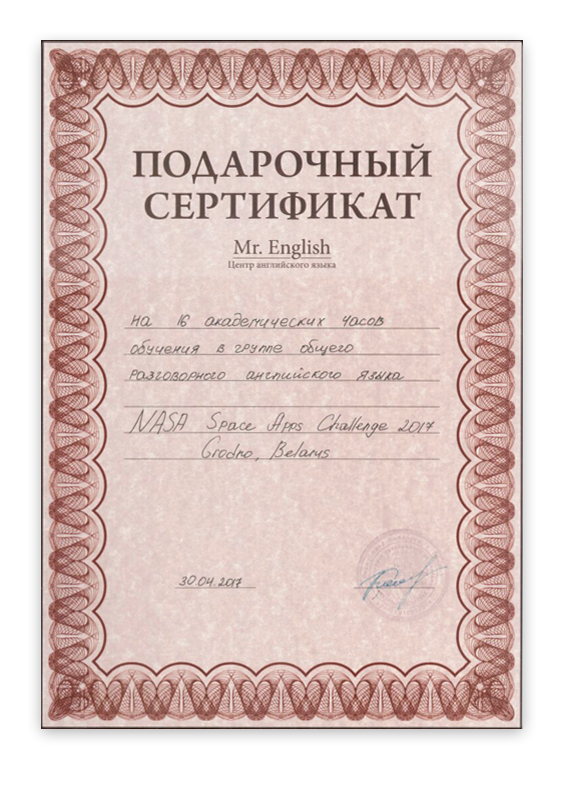 ПОДАРОЧНЫЙ
СЕРТИФИКАТ
Mr. English
Центр английского языка
на 16 академических часов
обучения в группе общего
разговорного английского языка
NASA Space Apps Challenge 2017
Grodno, Belarus
30.04.2017